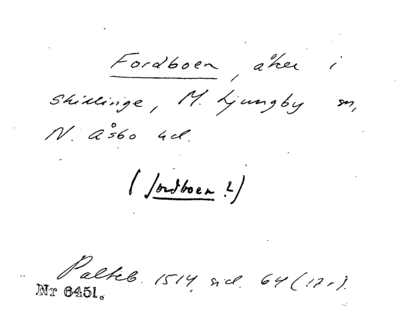 Fordboen, åker i
Skillinge, M. Ljungby sn,
N. Åsbo hd.
(Jordboen?)
Palteb. 1514, sid. 64 (17r).
Nr 6451.